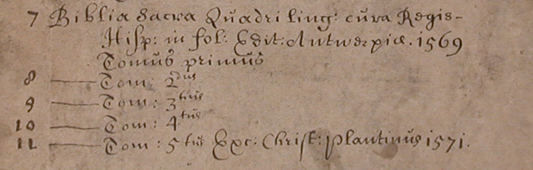 7 Biblia Sacra Quadriling: cura Regis-
Hisp: in fol: Edit: Antwerpiæ. 1569
Tomus primus
8 —— Tom: 2dus
9 —— Tom: 3tius
10 —— Tom: 4tus
11 —— Tom: 5tus Exc: Christ: Plantinus 1571.